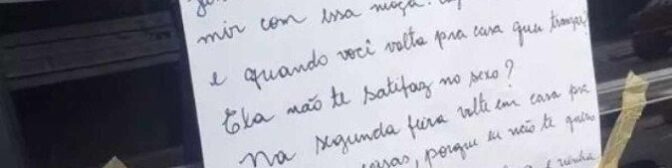 mir com essa moça.
e quando você volta pra casa quer transar
Ela não te satifaz no sexo?
Na segunda feira volte em casa pra
casas, porque eu não te quero